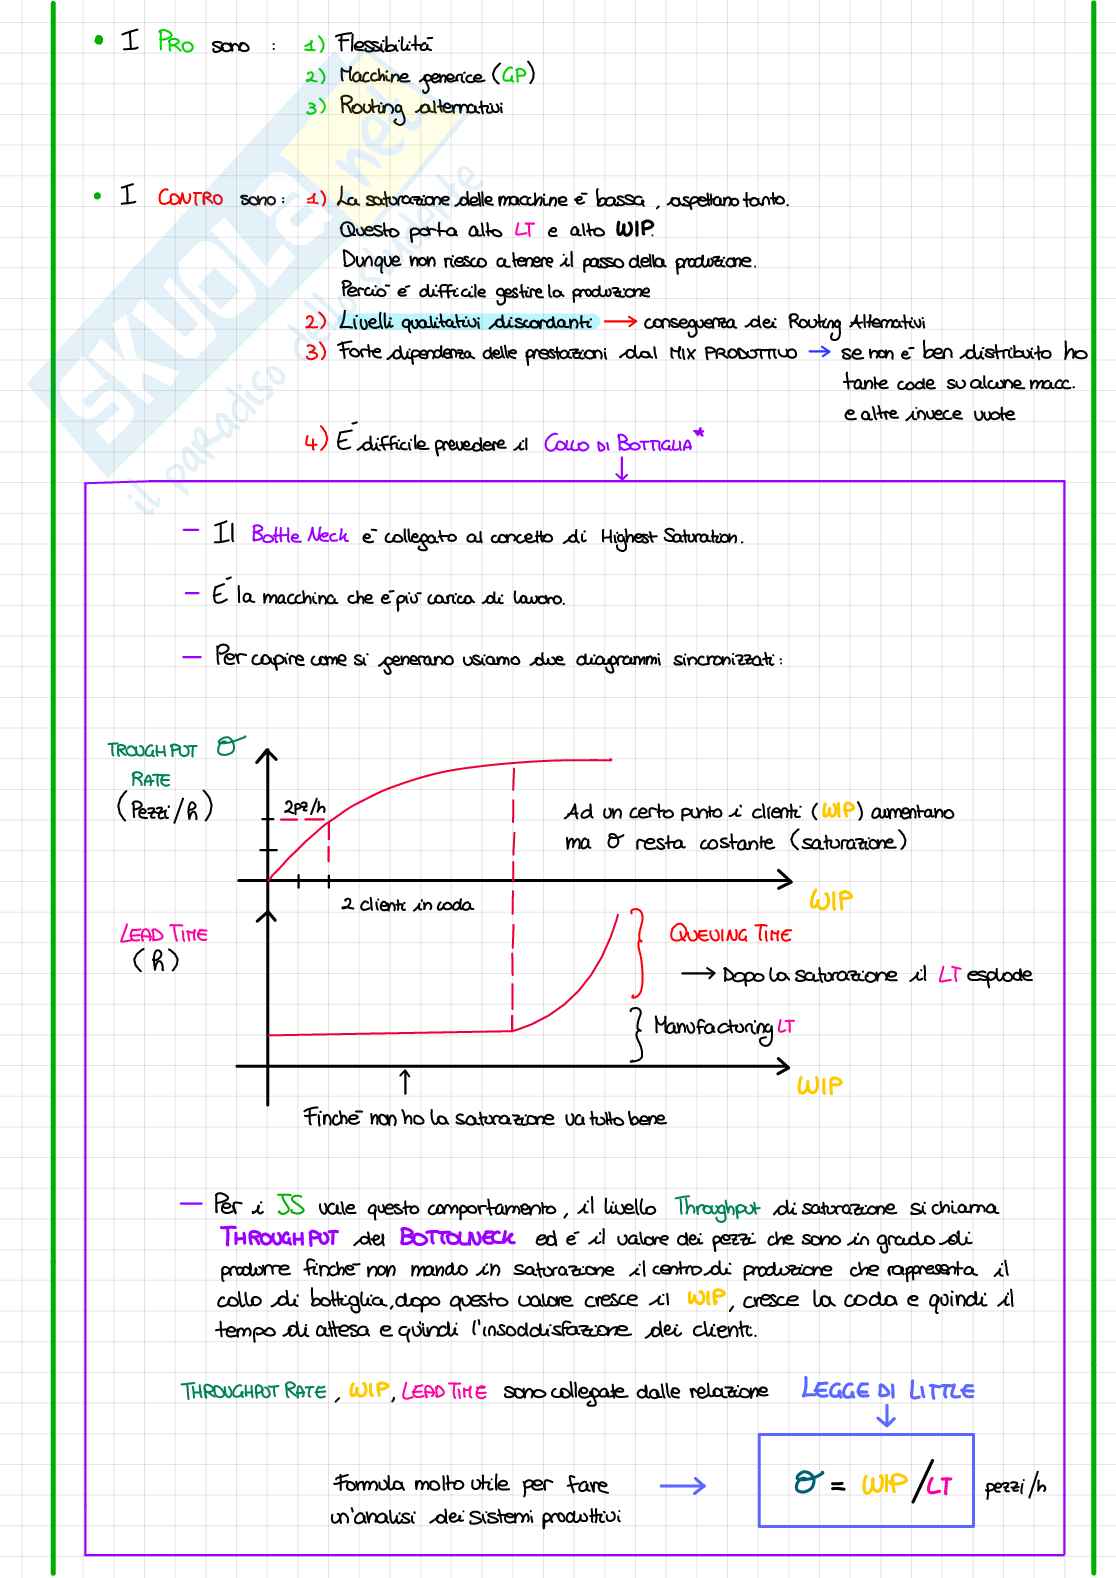 • I PRO sono : 1) Flessibilità
2) Macchine generiche (GP)
3) Routing alternativi
• I CONTRO sono: 1) La saturazione delle macchine è bassa, aspettano tanto.
Questo porta alto LT e alto WIP.
Dunque non riesco a tenere il passo della produzione.
Perciò è difficile gestire la produzione
2) Livelli qualitativi discordanti → conseguenza dei Routing Alternativi
3) Forte dipendenza delle prestazioni dal MIX PRODUTTIVO → se non è ben distribuito ho
tante code su alcune macc.
e altre invece vuote
4) È difficile prevedere il COLLO DI BOTTIGLIA*
- Il Bottle Neck è collegato al concetto di Highest Saturation.
- È la macchina che è più carica di lavoro.
- Per capire come si generano usiamo due diagrammi sincronizzati:
TROUGHPUT σ
RATE
(Pezzi/h)
2pz/h
Ad un certo punto i clienti (WIP) aumentano
ma σ resta costante (saturazione)
WIP
2 clienti in coda
LEAD TIME
(h)
QUEUING TIME
→ Dopo la saturazione il LT esplode
Manufacturing LT
WIP
Finchè non ho la saturazione va tutto bene
- Per i JS vale questo comportamento, il livello Throughput di saturazione si chiama
THROUGHPUT del BOTTOLNECK ed è il valore dei pezzi che sono in grado di
produrre finchè non mando in saturazione il centro di produzione che rappresenta il
collo di bottiglia, dopo questo valore cresce il WIP, cresce la coda e quindi il
tempo di attesa e quindi l'insoddisfazione dei clienti.
THROUGHPUT RATE, WIP, LEAD TIME sono collegate dalle relazione LEGGE DI LITTLE
Formula molto utile per fare → σ = WIP/LT pezzi/h
un'analisi dei sistemi produttivi
SKUOLA.net
il paradiso dello studente